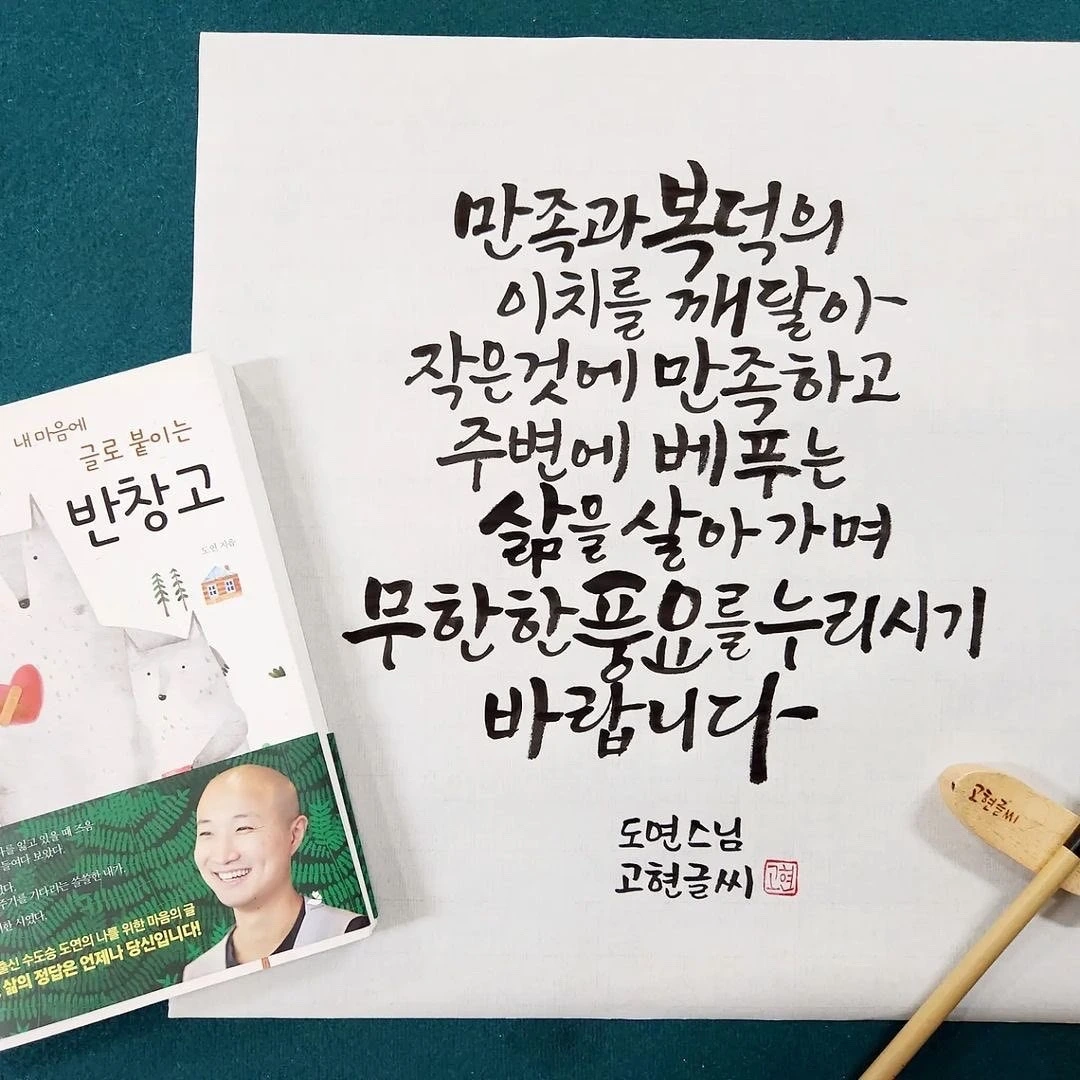 만족과 복덕의
이치를 깨달아
작은것에 만족하고
주변에 베푸는
삶을 살아가며
무한한 풍요를 누리시기
바랍니다
도연스님
고현글씨
고현
내 마음에
글로 붙이는
반창고
도연 지음
를 잃고 있을 때 즈음
들여다 보았다.
주기를 기다리는 쓸쓸한 내가,
시였다.
출신 수도승 도연의 나를 위한 마음의 글
삶의 정답은 언제나 당신입니다!
고현글씨